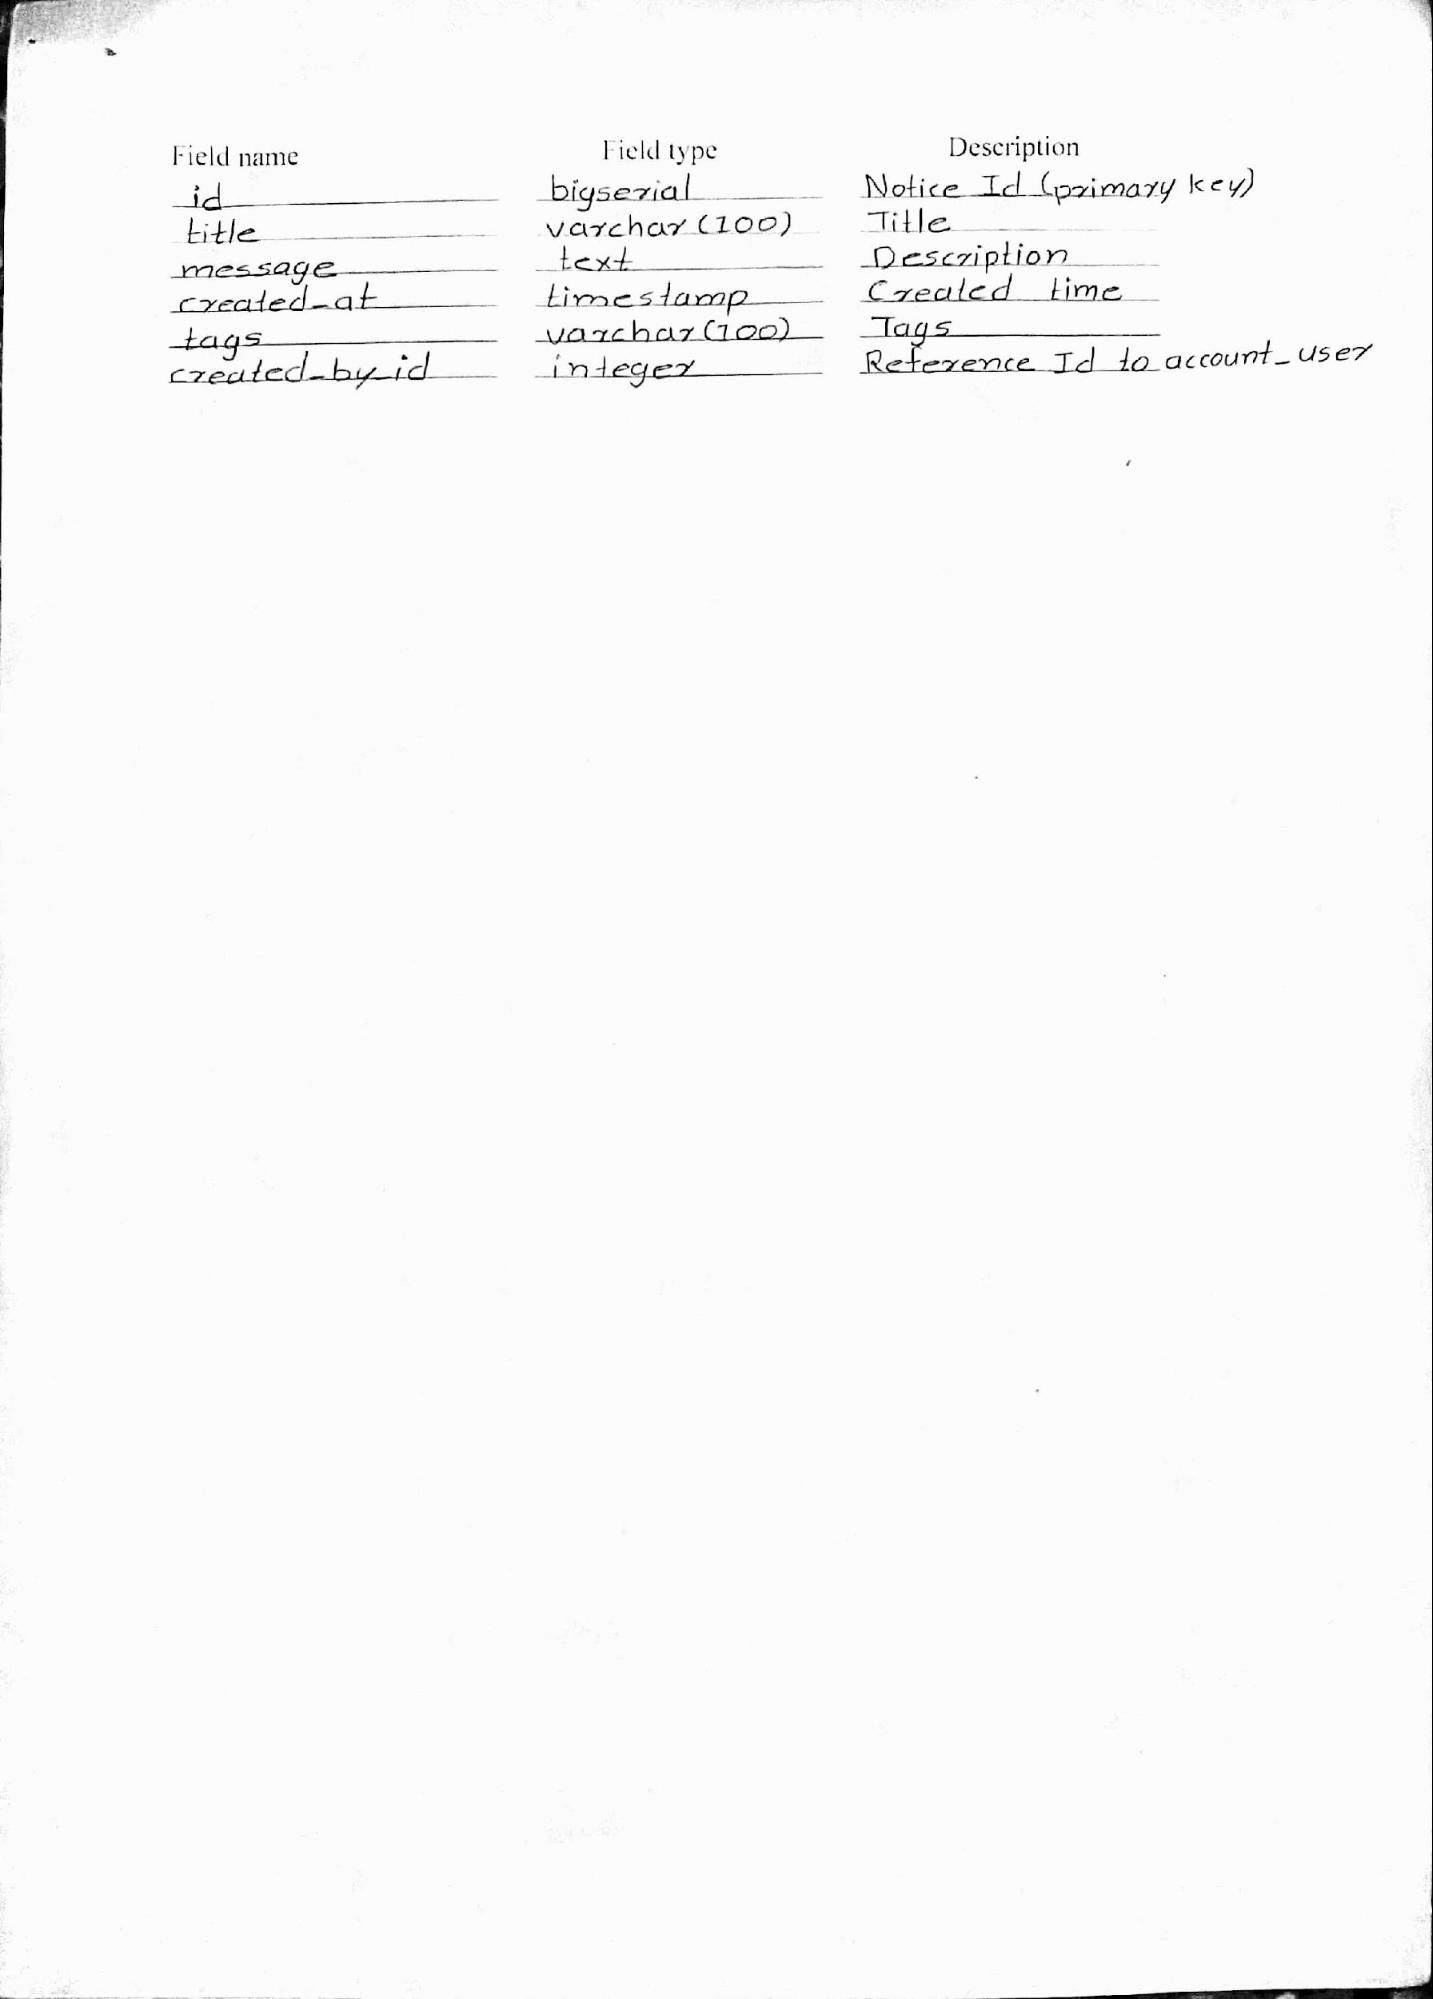 Field name Field type Description
id bigserial Notice Id (primary key)
title varchar (100) Title
message text Description
created_at timestamp Created time
tags varchar (100) Tags
created_by_id integer Reference Id to account_user